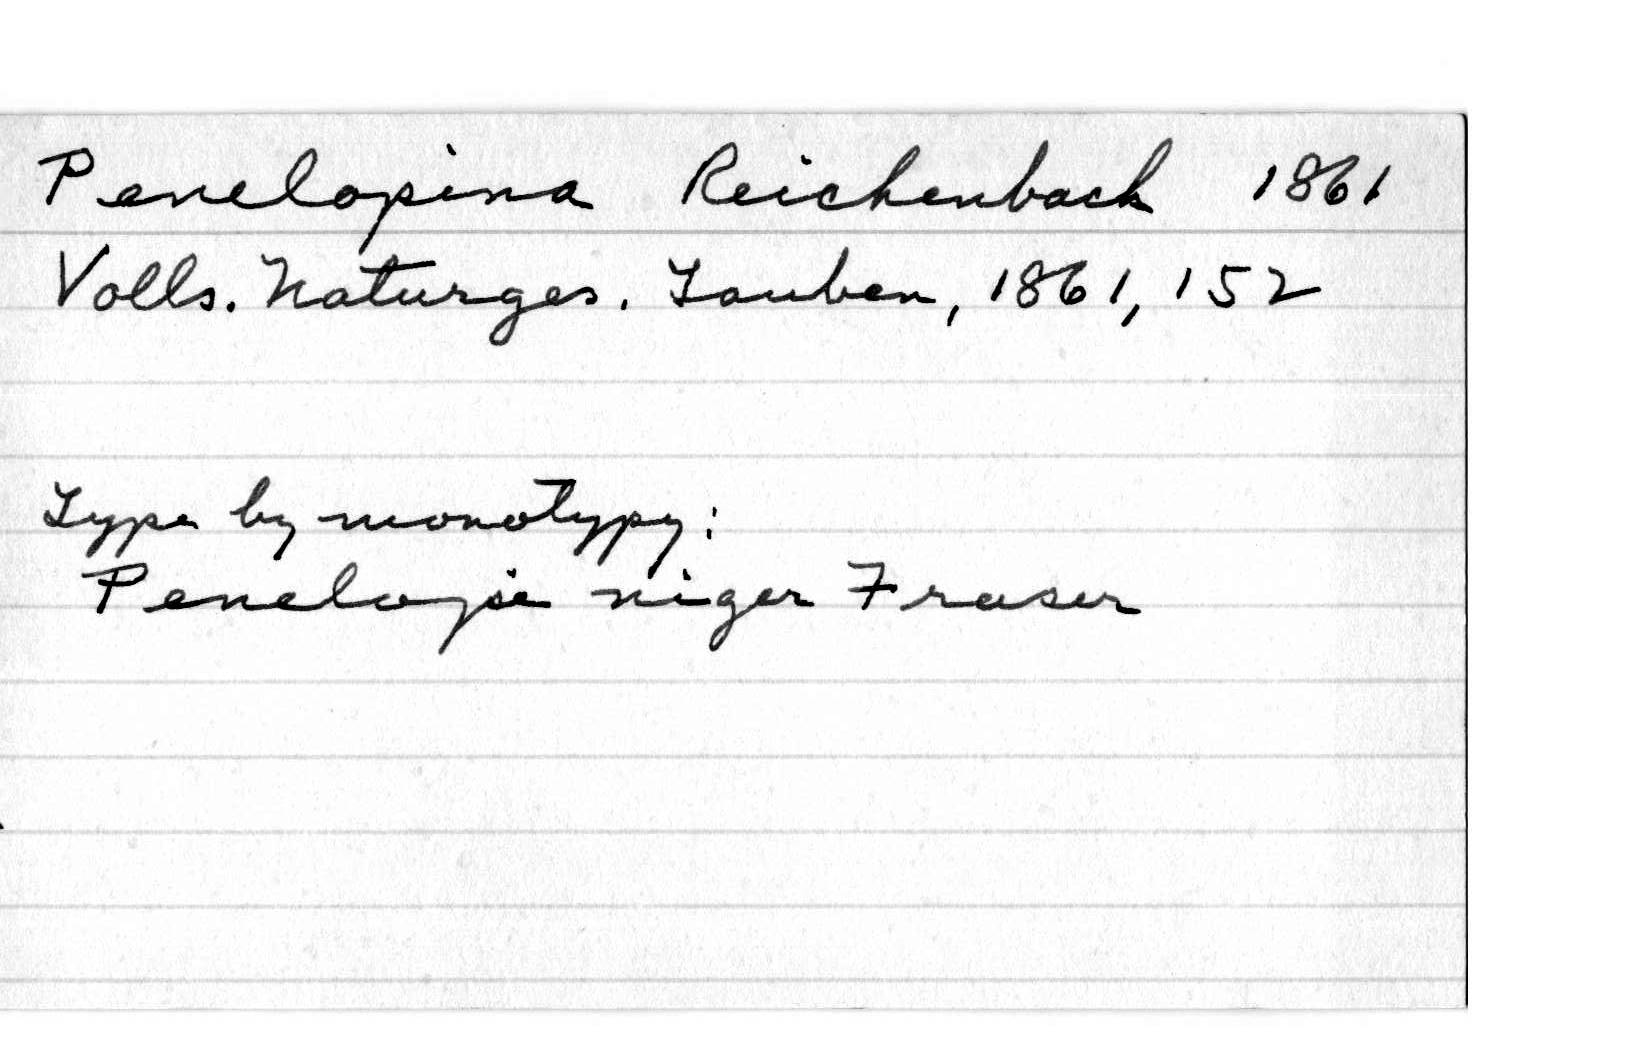 Penelopina Reichenbach 1861
Volls. Naturges. Tauben, 1861, 152
Type by monotypy:
Penelope niger Fraser